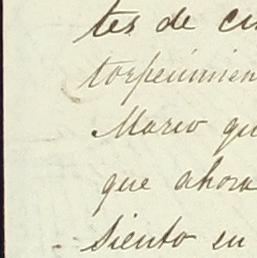 tes de cis
torpecimien
Marco qu
que ahora
siento en